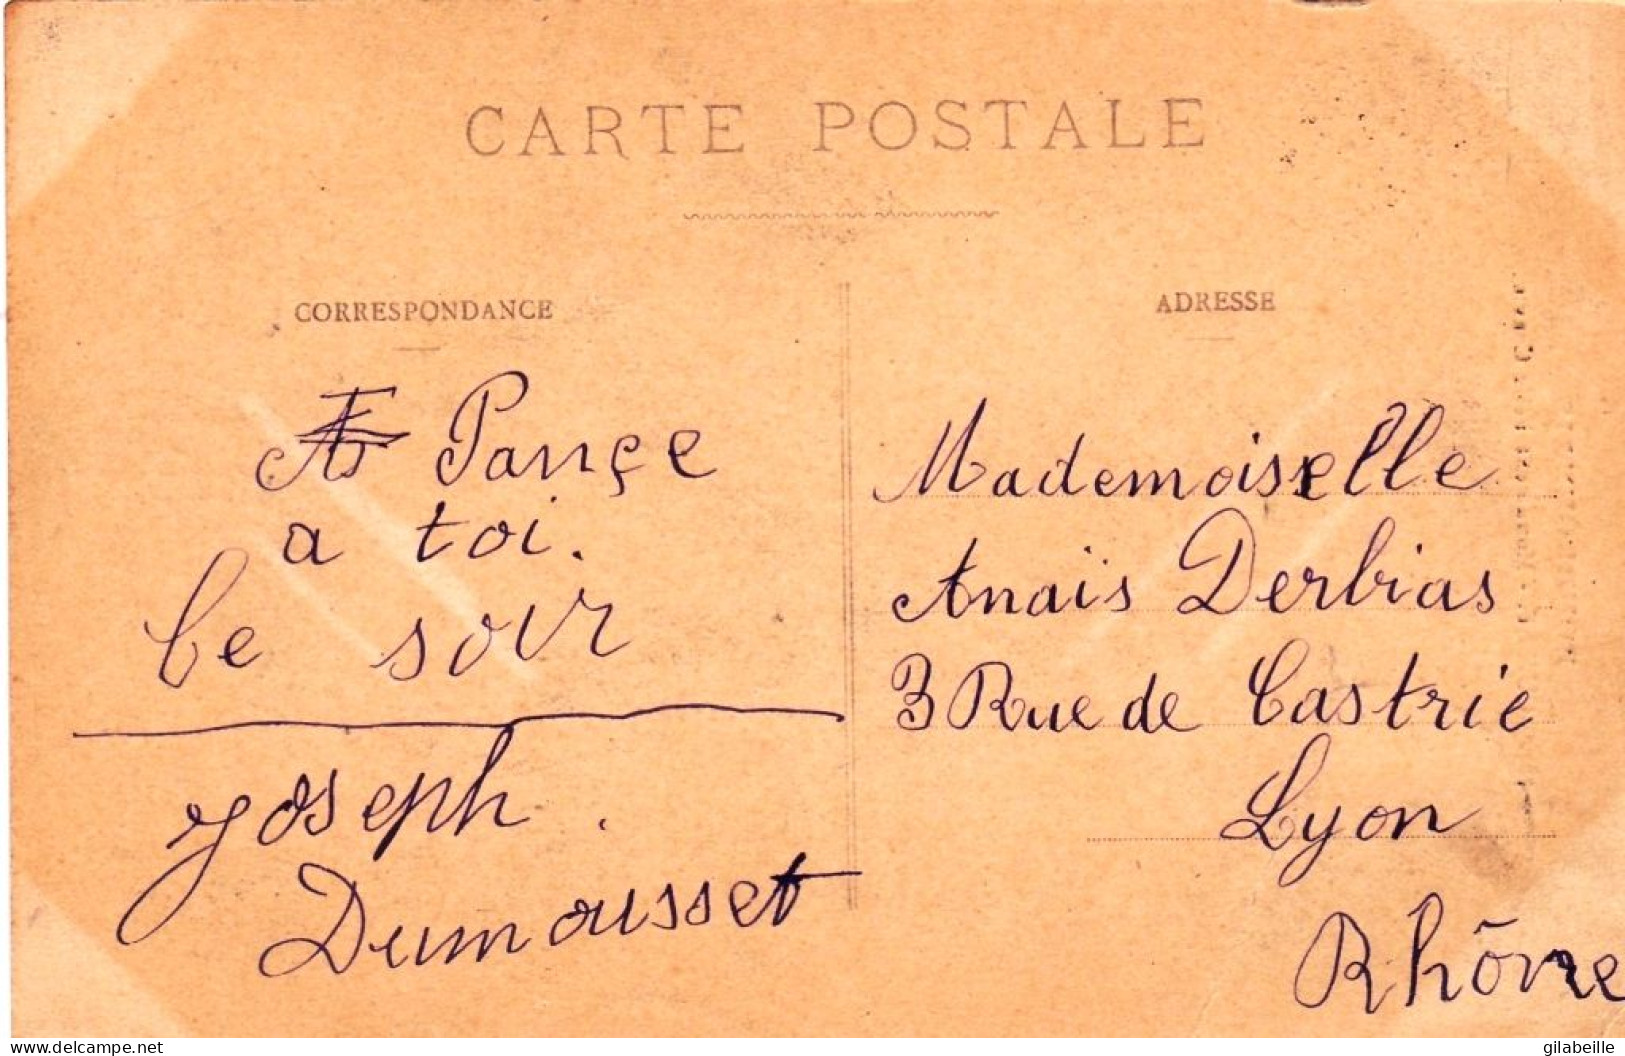 CARTE POSTALE
CORRESPONDANCE
Pançe
a toi.
Ce soir
Joseph
Dumousset
ADRESSE
Mademoiselle
Anaïs Derbias
3 Rue de Castrie
Lyon
Rhône
www.delcampe.net
gilabeille